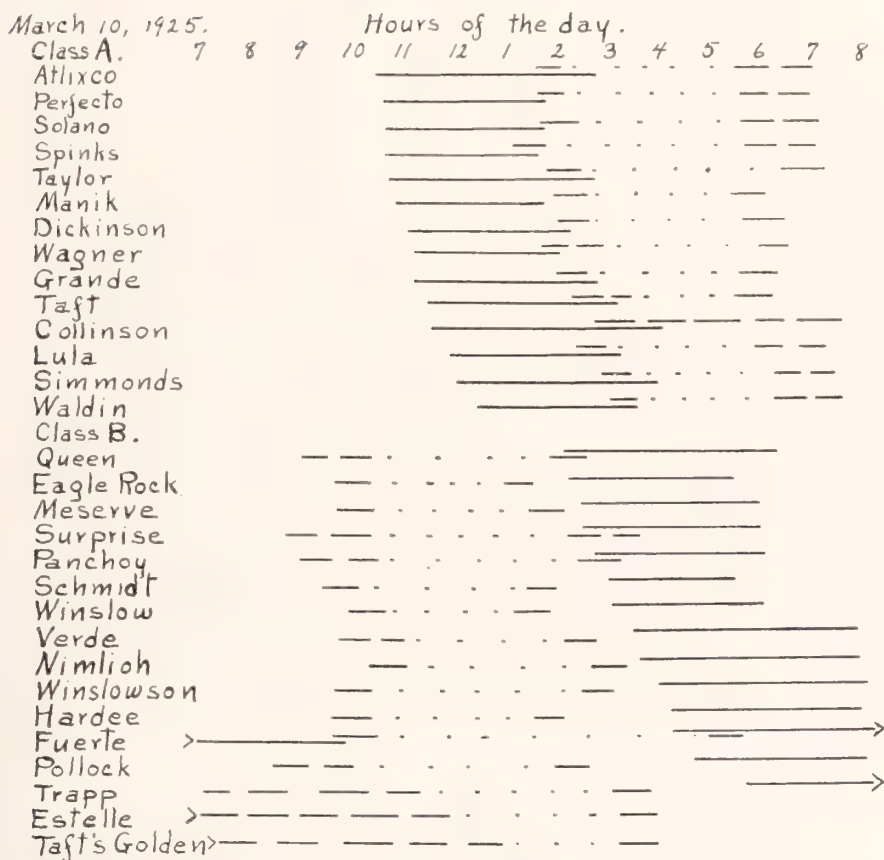 March 10, 1925. Hours of the day.
Class A. 7 8 9 10 11 12 1 2 3 4 5 6 7 8
Atlixco
Perfecto
Solano
Spinks
Taylor
Manik
Dickinson
Wagner
Grande
Taft
Collinson
Lula
Simmonds
Waldin
Class B.
Queen
Eagle Rock
Meserve
Surprise
Panchoy
Schmidt
Winslow
Verde
Nimlioh
Winslowson
Hardee
Fuerte
Pollock
Trapp
Estelle
Taft's Golden